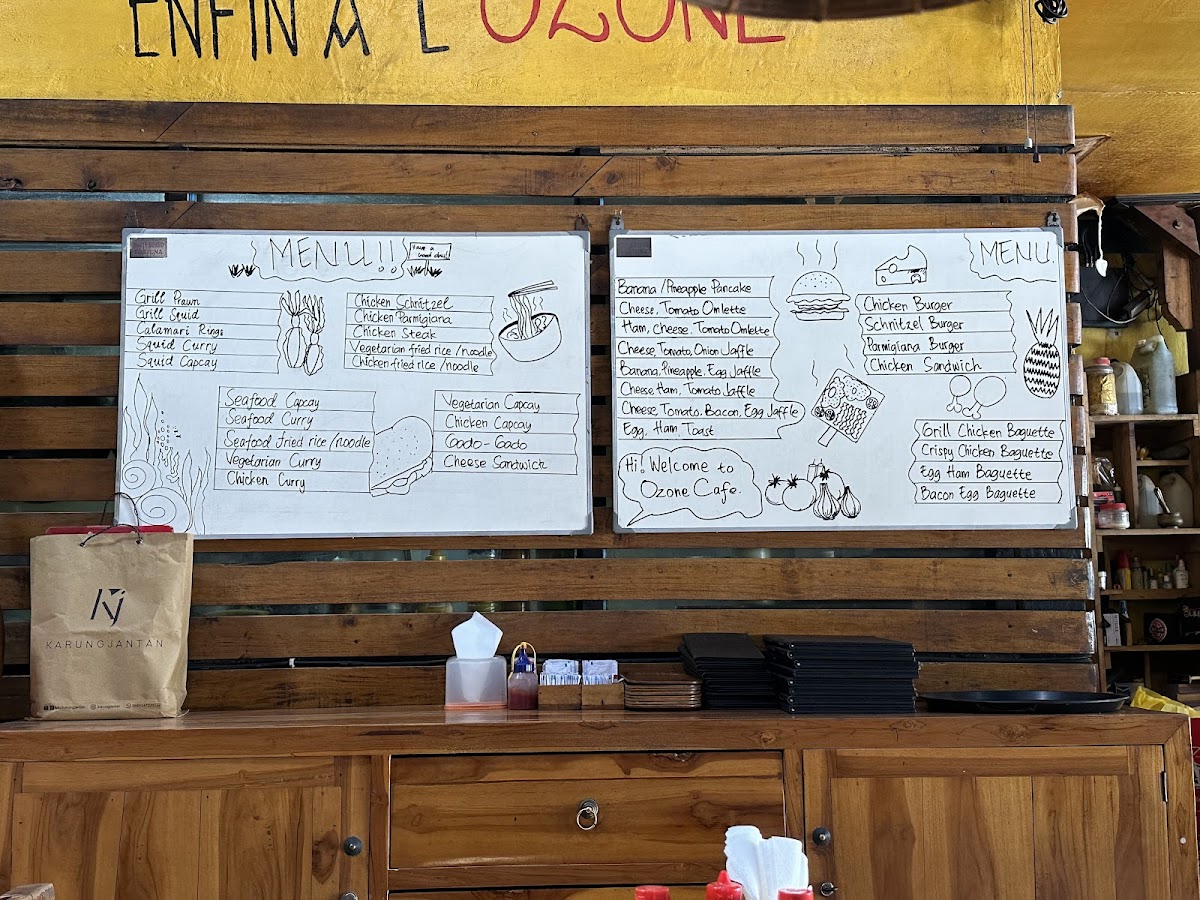 ENFIN A L'OZONE
MENU!!
Have a
Good day!
Grill Prawn
Grill Squid
Calamari Rings
Squid Curry
Squid Capcay
Chicken Schnitzel
Chicken Parmigiana
Chicken Steak
Vegetarian fried rice /noodle
Chicken fried rice /noodle
Seafood Capcay
Seafood Curry
Seafood fried rice /noodle
Vegetarian Curry
Chicken Curry
Vegetarian Capcay
Chicken Capcay
Gado-Gado
Cheese Sandwich
MENU
Banana /Pineapple Pancake
Cheese, Tomato Omlette
Ham, cheese. Tomato Omlette
Cheese, Tomato, Onion Jaffle
Banana, Pineapple, Egg Jaffle
Cheese, Ham, Tomato Jaffle
Cheese, Tomato, Bacon, Egg Jaffle
Egg, Ham, Toast
Hi! Welcome to
Ozone Cafe.
Chicken Burger
Schnitzel Burger
Parmigiana Burger
Chicken Sandwich
Grill Chicken Baguette
Crispy Chicken Baguette
Egg Ham Baguette
Bacon Egg Baguette
KJ
KARUNGJANTAN